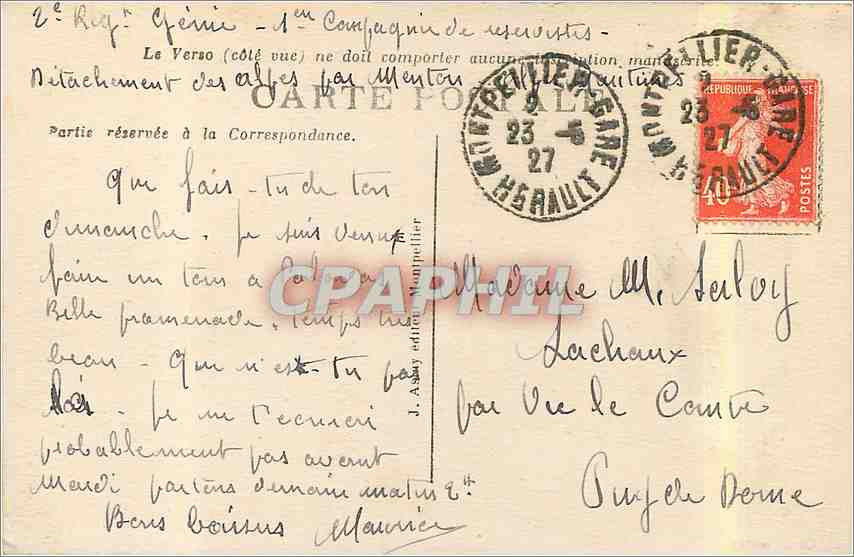 2e Regt Génie - 1ère Compagnie de réservistes -
Le Verso (côté vue) ne doit comporter aucune inscription manuscrite.
Détachement des alpes par Menton
CARTE POSTALE
Partie réservée à la Correspondance.
Que fais-tu de ton
dimanche. Je suis venu
faire un tour a
Belle promenade. Temps très
beau - Que n'es-tu pas
là - Je ne t'écrirai
probablement pas avant
Mardi partons demain matin
Bons baisers Maurice
J. Assay éditeur Montpellier
CPAPHIL
MONTPELLIER-GARE
2
23 -6
27
HÉRAULT
MONTPELLIER-GARE
2
23 -6
27
HÉRAULT
RÉPUBLIQUE FRANÇAISE
40c
POSTES
Madame M. Saloy
Lachaux
par Vic le Comte
Puy de Dome